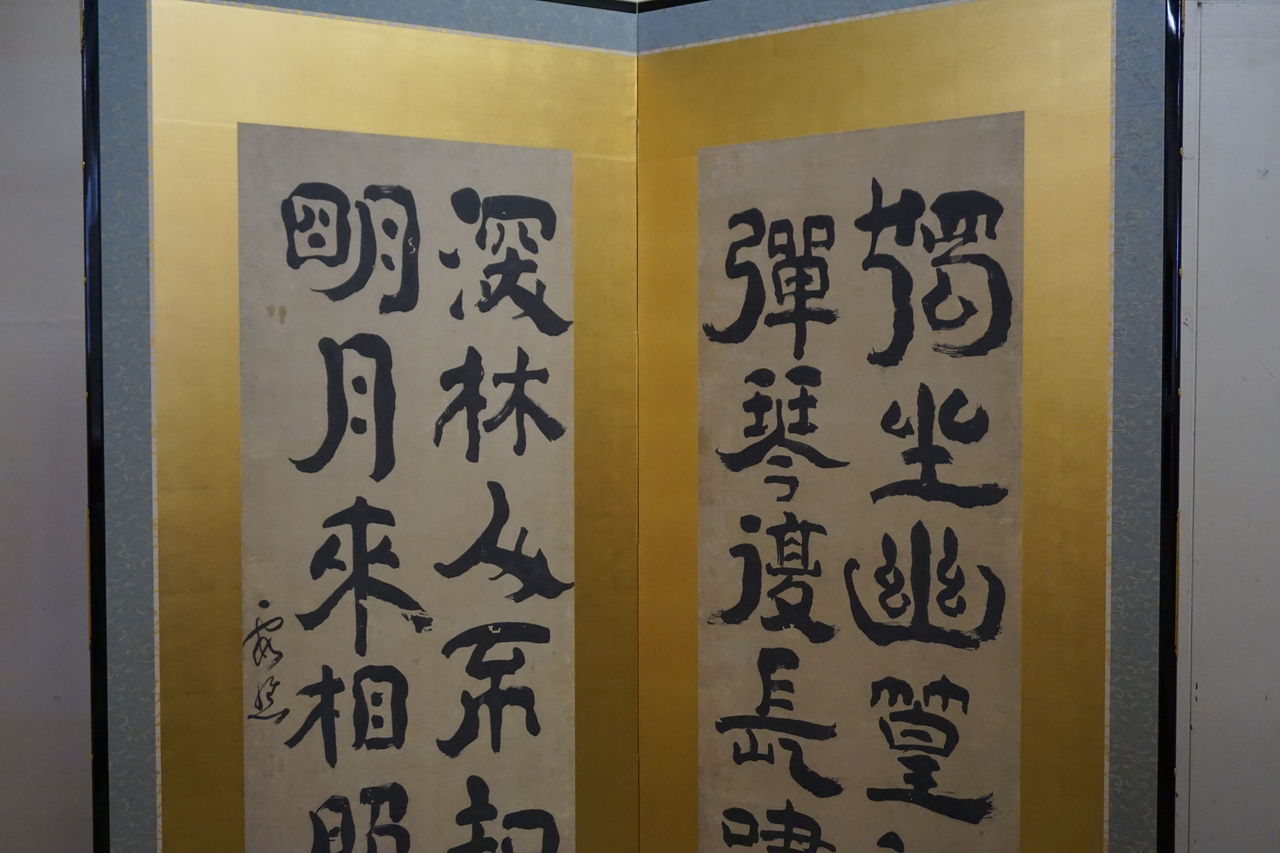 獨坐幽篁
彈琴復長嘯
深林人不知
明月來相照
霞樵